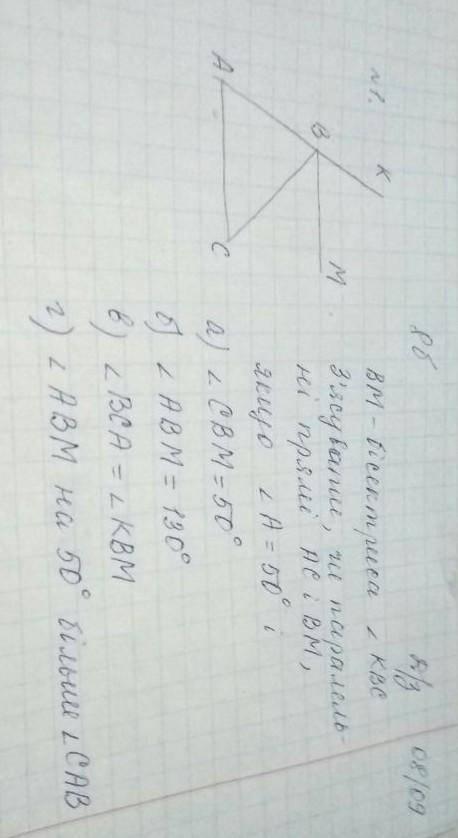 8б д/з 08/09
№1.
K
B
A
M
C
BM - бісектриса ∠ KBC
З'ясувати, чи паралель-
ні прямі AC і BM,
якщо ∠A = 50° і
а) ∠CBM = 50°
б) ∠ABM = 130°
в) ∠BCA = ∠KBM
г) ∠ABM на 50° більше ∠CAB